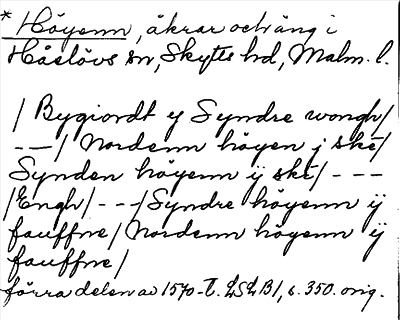 * Höyenn, åkrar och äng i
Håslövs sn, Skytts hd, Malm. l.
/ Bygiordt y Syndre wongh/
---/ Nordenn höyen j ské/
Synden höyenn ÿ ské/ ---
/Engh/ ---/Syndre höyenn ÿ
fauffne/ Nordenn höyenn ÿ
fauffne/
förra delen av 1570-t. LSLB1, s. 350. orig.